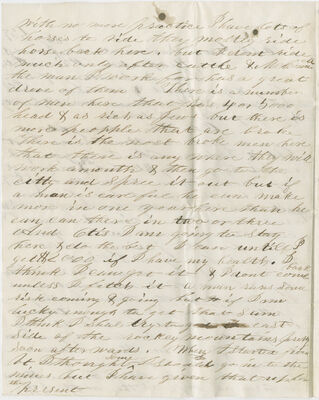 with no more practice I have lots of
horses to ride they mostly ride
horse back here. but I dont ride
much only after cattle &
the man I work for has a great
drove of them There is a number
of men here that has 4 or 5000
head & as rich as Jews but there is
more people that are broke
there is the most broke men here
that there is any where they will
work a month & then go to the
citty and spree it out but if
a man is careful he can make
more in one year here than he
can there in two or three
And Otis I am going to stay
here & do the best I can until I
get if I have my health. I
think I can get it & I wont come back
unless I fetch it a man runs some
risk coming & going but if I am
lucky enough to get that sum
I think I shal try to east
side of the rockey mountains pretty
soon after wards. When I started from
I thought I should go in to the
mines but I have given that up for
the present